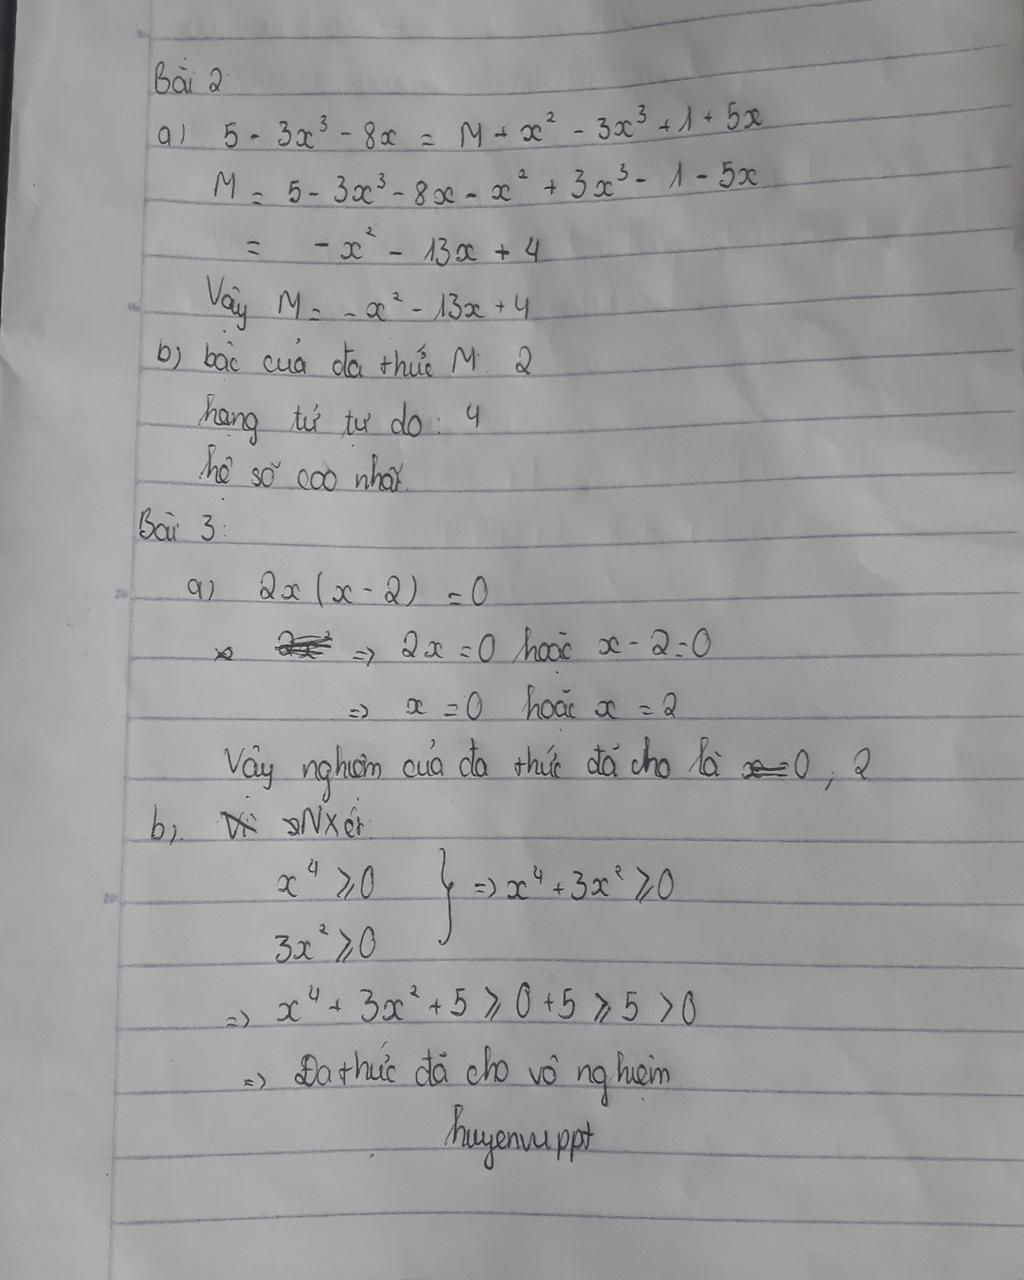 Bài 2:
a) 5 - 3x³ - 8x = M + x² - 3x³ + 1 + 5x
M = 5 - 3x³ - 8x - x² + 3x³ - 1 - 5x
= -x² - 13x + 4
Vậy M = -x² - 13x + 4
b) bậc của đa thức M: 2
hạng tử tự do: 4
hệ số cao nhất
Bài 3:
a) 2x(x - 2) = 0
=> 2x = 0 hoặc x - 2 = 0
=> x = 0 hoặc x = 2
Vậy nghiệm của đa thức đã cho là 0, 2
b) NXét:
x⁴ ⩾ 0 } => x⁴ + 3x² ⩾ 0
3x² ⩾ 0
=> x⁴ + 3x² + 5 ⩾ 0 + 5 ⩾ 5 > 0
=> Đa thức đã cho vô nghiệm
huyenvuppt